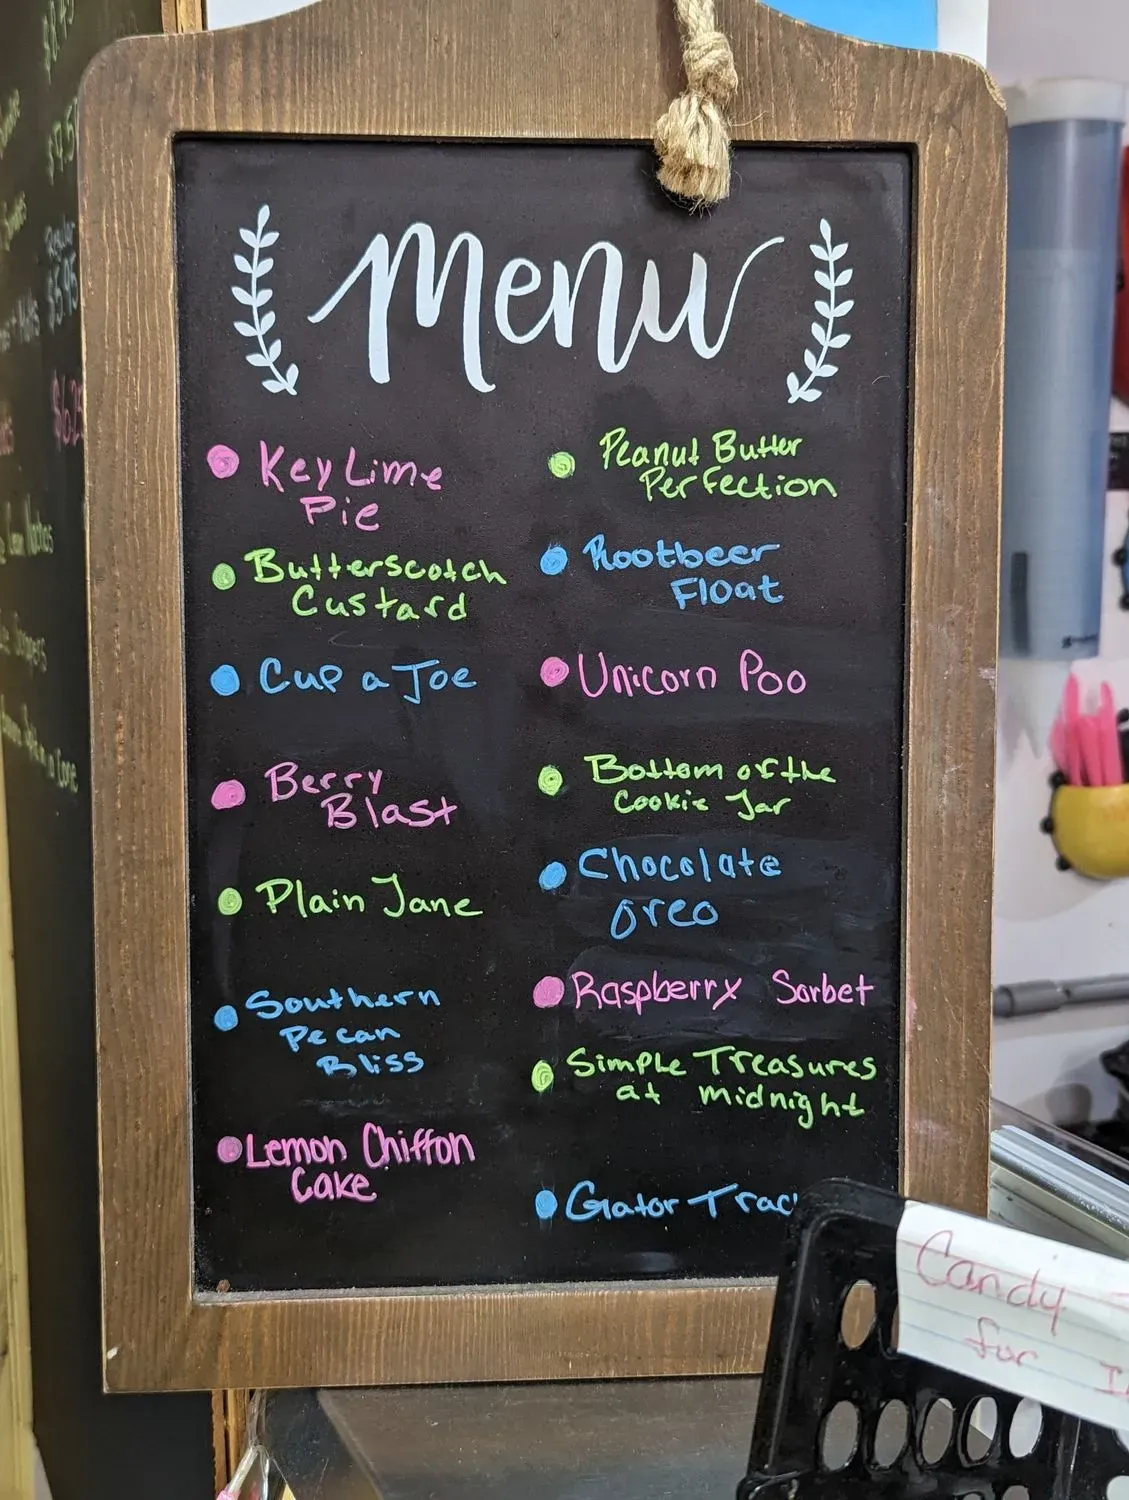 Menu
Key Lime
Pie
Butterscotch
Custard
Cup a Joe
Berry
Blast
Plain Jane
Southern
Pecan
Bliss
Lemon Chiffon
Cake
Peanut Butter
Perfection
Rootbeer
Float
Unicorn Poo
Bottom of the
Cookie Jar
Chocolate
oreo
Raspberry Sorbet
Simple Treasures
at midnight
Gator
Candy
for
Regular
$5.95
$6.25